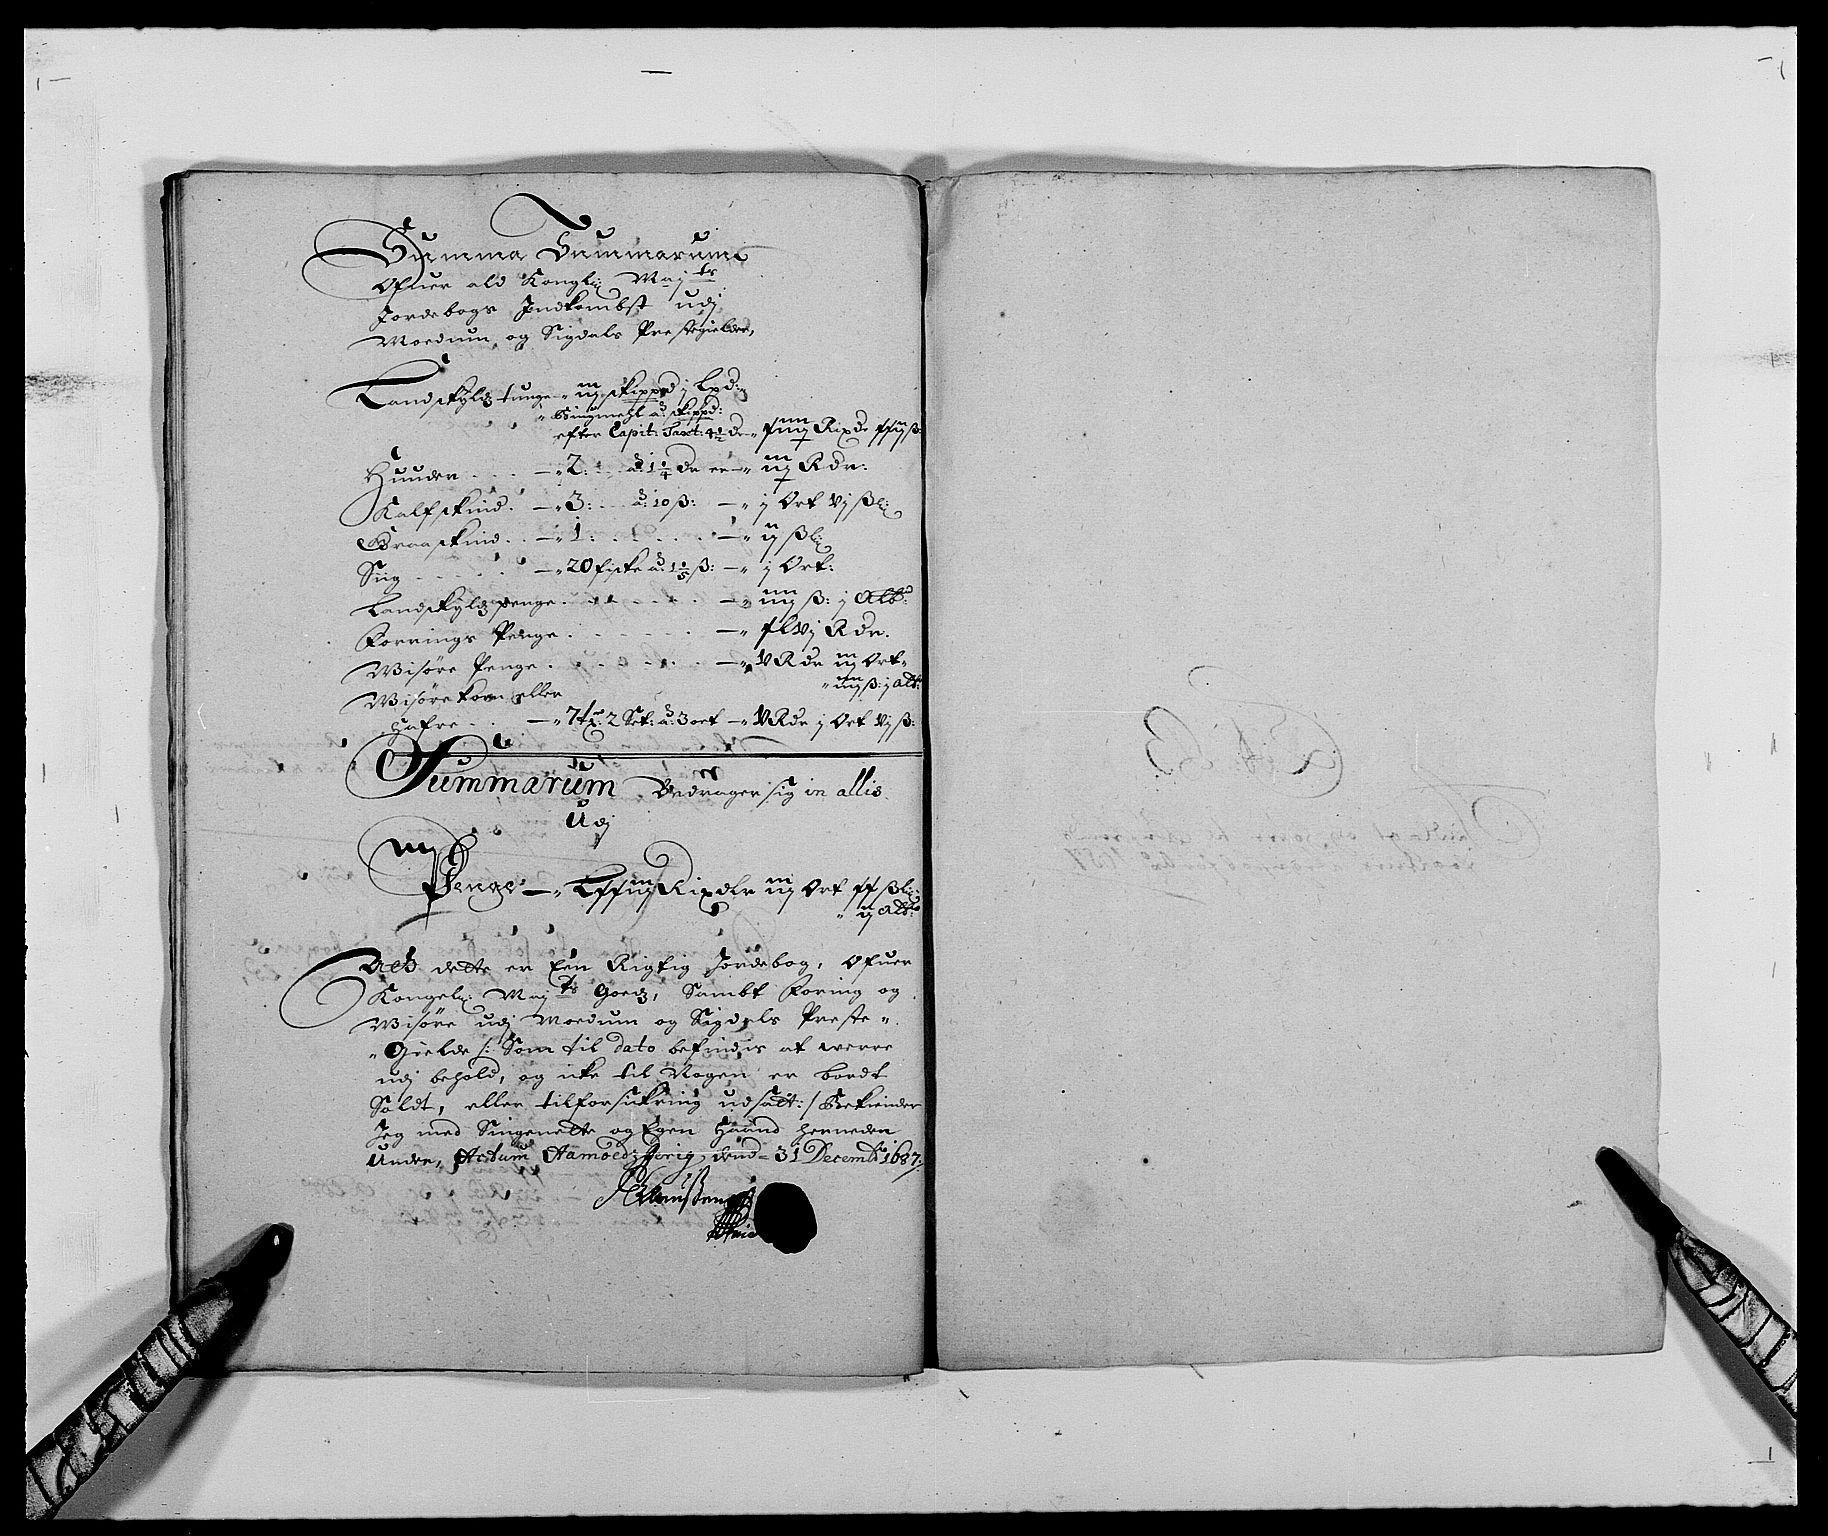 Summa Summarum
Ofuer ald Kongl: Maj:ts
Jordebogs Indkombst udj
Moedum, og Sigdals Prestegielder,
Landskyldz tunge „ iij skippd j Lpd:
Bingmehl a: skippd:
efter Capit: Taxt: 4½ dr Rixdr ß:
Huuder . . . „ 2: . . a: 1¼ dr er „ iij Rdr:
Kalfskind . „ 3: . . a: 10 ß: „ j Ort vj ßl:
Graaskind . . „ 1: . . . . „ ij ßl:
Siig . . . . „ 20 fiske a: 1⅕ ß: „ j Ort:
Landskyldz penge . . . . . „ iiij ß: j alb:
Forrings Penge . . . . „ xlvj Rdr.
Wisöre Penge . . . . . „ v Rdr iij Ort
„ iiij ß: j alb:
Wisöre korn eller
Hafre . . „ 7 tr: 2 Set: a: 3 ort „ v Rdr j Ort vj ß:
Summarum Bedrager sig in allis
Udj
Penge „ Lxxiij Rixdlr iij Ort xx ßl:
„ ij alb:
At dette er Een Rigtig Jordebog, Ofuer
Kongel: Maj:ts Goedz, Sambt Foring og
Wisöre udj Moedum og Sigdals Preste„
„Gielde /: Som til dato befindis at werre
udj behold, og icke til Nogen er bordt
Soldt, eller til forsickring udsatt: / Bekiender
Jeg med Singenette og Egen Haand herneden
Under, Actum dend 31 Decemb: 1687: